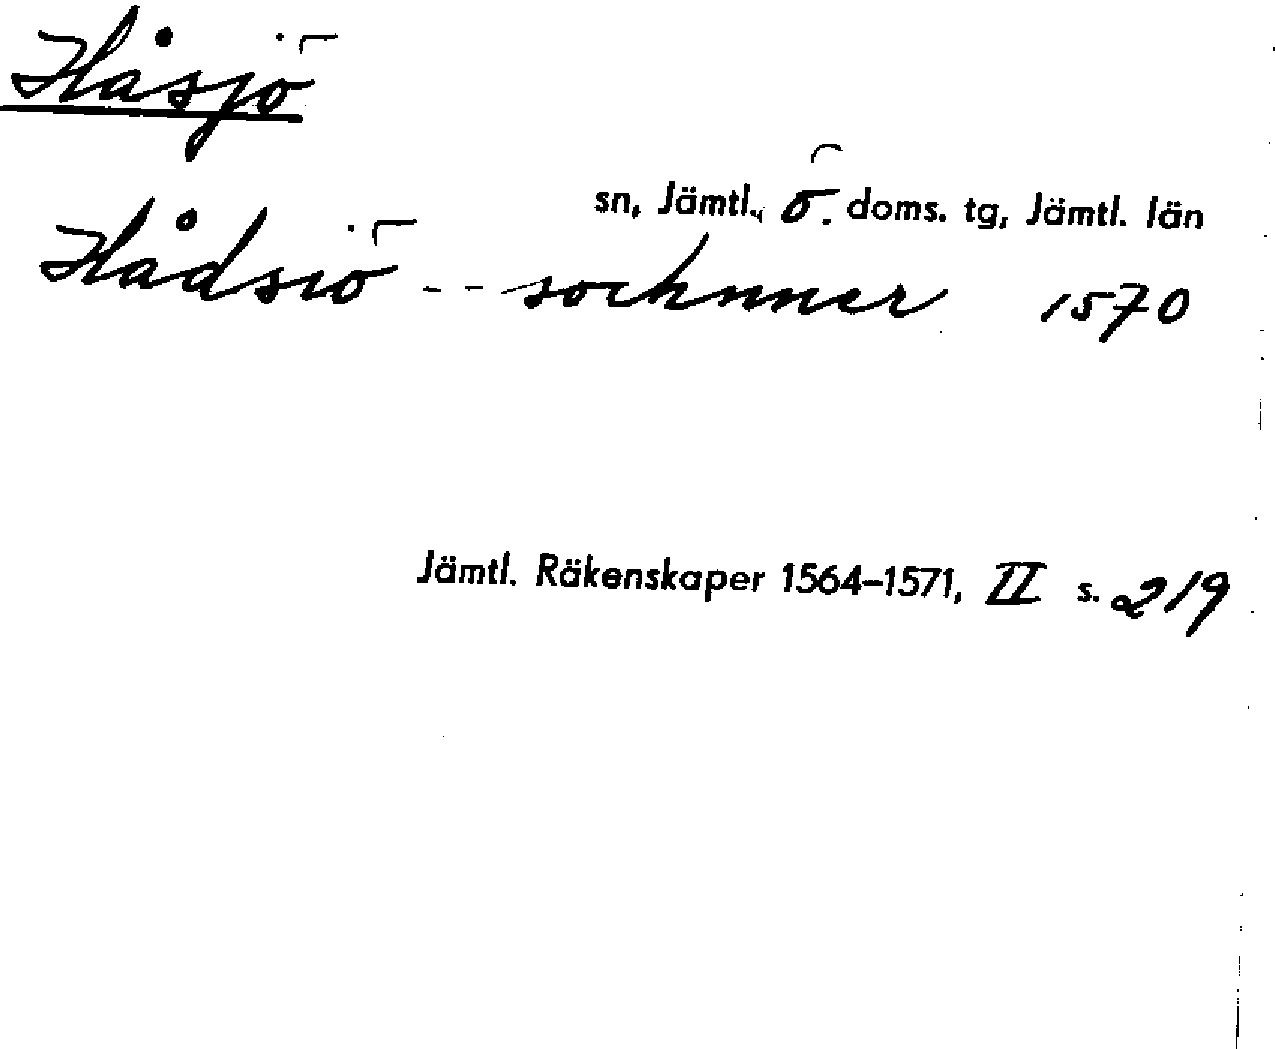 Håsjö
sn, Jämtl., ö. doms. tg, Jämtl. län
Hådsiö - - sochnner 1570
Jämtl. Räkenskaper 1564–1571, II s. 219